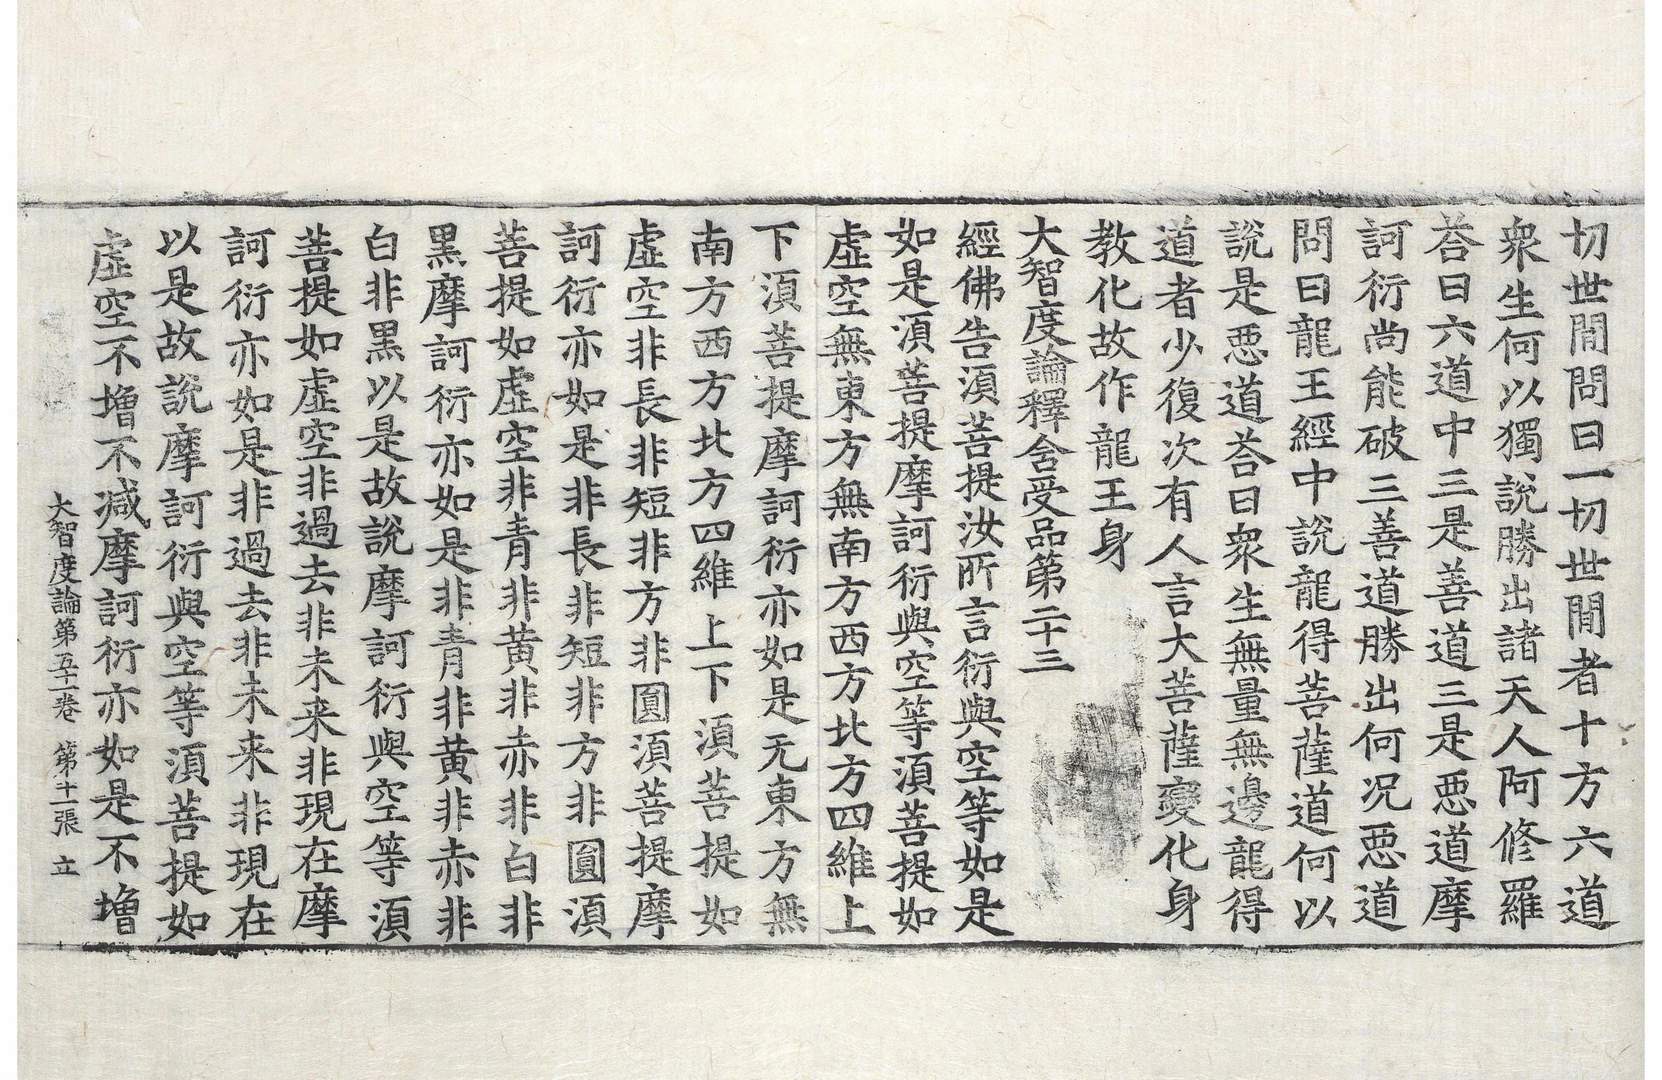 切世閒問曰一切世閒者十方六道
衆生何以獨說勝出諸天人阿修羅
荅曰六道中三是善道三是惡道摩
訶衍尚能破三善道勝出何況惡道
問曰龍王經中說龍得菩薩道何以
說是惡道荅曰衆生無量無邊龍得
道者少復次有人言大菩薩變化身
教化故作龍王身
大智度論釋含受品第二十三
經佛告湏菩提汝所言衍與空等如是
如是湏菩提摩訶衍與空等湏菩提如
虛空無東方無南方西方北方四維上
下湏菩提摩訶衍亦如是无東方無
南方西方北方四維上下湏菩提如
虛空非長非短非方非圓湏菩提摩
訶衍亦如是非長非短非方非圓湏
菩提如虛空非青非黃非赤非白非
黑摩訶衍亦如是非青非黃非赤非
白非黑以是故說摩訶衍與空等湏
菩提如虛空非過去非未来非現在摩
訶衍亦如是非過去非未来非現在
以是故說摩訶衍與空等湏菩提如
虛空不增不减摩訶衍亦如是不增
大智度論第五十一卷 第十一張 立